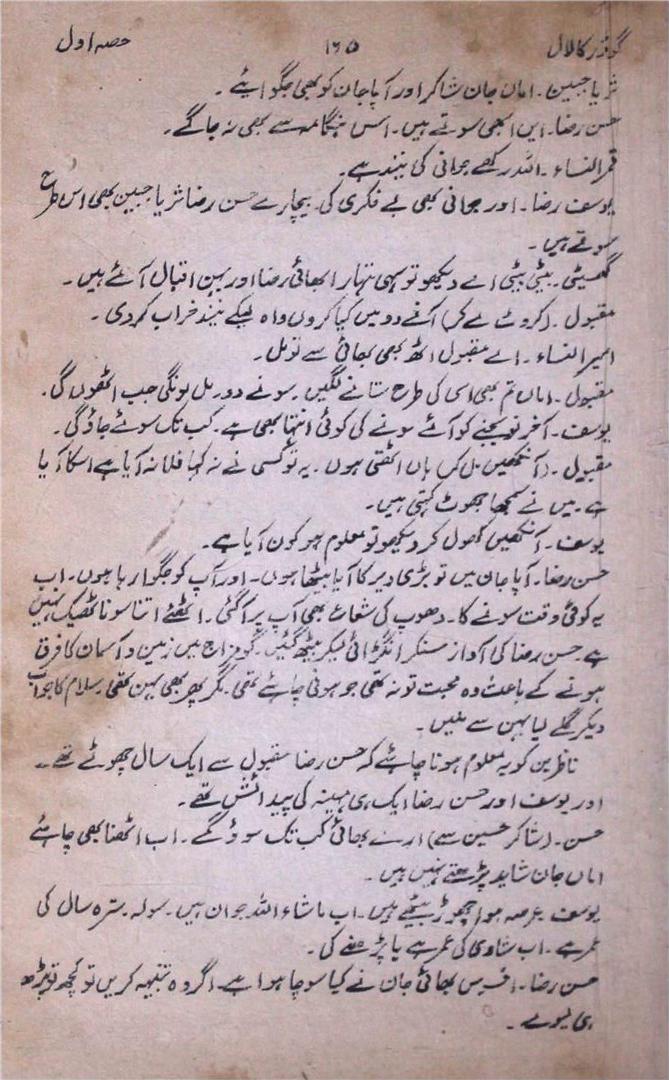 گودڑ کا لال ۱۶۵ حصہ اول
ثریا جبین۔ اماں جان شاکر اور آپا جان کو بھی جگوایئے۔
حسن رضا۔ ایں ابھی سوتے ہیں۔ اس ہنگامہ سے بھی نہ جاگے۔
قمر النساء۔ اللہ رکھے جوانی کی نیند ہے۔
یوسف رضا۔ اور جوانی بھی بے فکری کی۔ بیچارے حسن رضا ثریا جبین بھی اس طرح
سوتے ہیں۔
گھسیٹی۔ بیٹی بیٹی اے دیکھو تو سہی تمہارا بھائی رضا اور بہن اقبال آئے ہیں۔
مقبول۔ (کروٹ لے کر) آنے دو میں کیا کروں واہ لیکے نیند خراب کر دی۔
امیر النساء۔ اے مقبول اٹھ بھی بھائی سے تو مل۔
مقبول۔ اماں تم بھی اسی کی طرح ستانے لگیں۔ سونے دو۔ مل لونگی جب اٹھوں گی۔
یوسف۔ آخر نو بجنے کو آئے سونے کی کوئی انتہا بھی ہے۔ کب تک سوئے جاؤ گی۔
مقبول۔ (آنکھیں مل کر) ہاں اٹھتی ہوں۔ یہ تو کسی نے نہ کہا فلانہ آیا ہے اسکا آیا
ہے۔ میں نے سمجھا جھوٹ کہتی ہیں۔
یوسف۔ آنکھیں کھول کر دیکھو تو معلوم ہو کون آیا ہے۔
حسن رضا۔ آپا جان میں تو بڑی دیر کا آیا بیٹھا ہوں۔ اور آپ کو جگوا رہا ہوں۔ اب
یہ کوئی وقت سونے کا۔ دھوپ کی شعاع بھی آپ پر آ گئی۔ اٹھئے اتنا سونا ٹھیک نہیں
ہے۔ حسن رضا کی آواز سنکر انگڑائی لیکر بیٹھ گئیں۔ گو مزاج میں زمین و آسمان کا فرق
ہونے کے باعث وہ محبت تو نہ تھی جو ہونی چاہئے تھی۔ مگر پھر بھی بہن تھی۔ سلام کا جواب
دیکر گلے لیا بہن سے ملیں۔
ناظرین کو یہ معلوم ہونا چاہئے کہ حسن رضا مقبول سے ایک سال چھوٹے تھے۔
اور یوسف اور حسن رضا ایک ہی مہینہ کی پیدائش تھے۔
حسن۔ (شاکر حسین سے) ارے بھائی کب تک سوؤ گے۔ اب اٹھنا بھی چاہئے
اماں جان شاید پڑھتے نہیں ہیں۔
یوسف۔ عرصہ ہوا چھوڑ بیٹھے ہیں۔ اب ماشاء اللہ جوان ہیں۔ سولہ سترہ سال کی
عمر ہے۔ اب شادی کی عمر ہے یا پڑھنے کی۔
حسن رضا۔ افسوس بھائی جان نے کیا سوچا ہوا ہے۔ اگر وہ تنبیہ کریں تو کچھ تو پڑھ
ہی لیوے۔